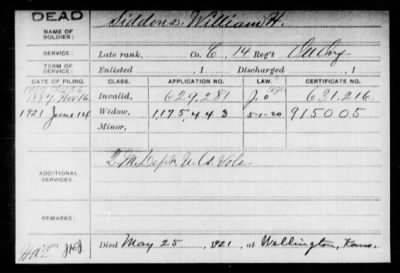 DEAD
NAME OF SOLDIER: Siddons, William H.
SERVICE: Late rank, Co. C, 14 Reg't Cav
TERM OF SERVICE: Enlisted , 1 Discharged , 1
DATE OF FILING. CLASS. APPLICATION NO. LAW. CERTIFICATE NO.
1887 Nov 16 Invalid, 629,281 631,216
1921 June 14 Widow, 1,175,443 5-1-20 915005
Minor,
ADDITIONAL SERVICES: U.S. Vols.
REMARKS:
Died May 25, 1921, at Wellington, Kans.